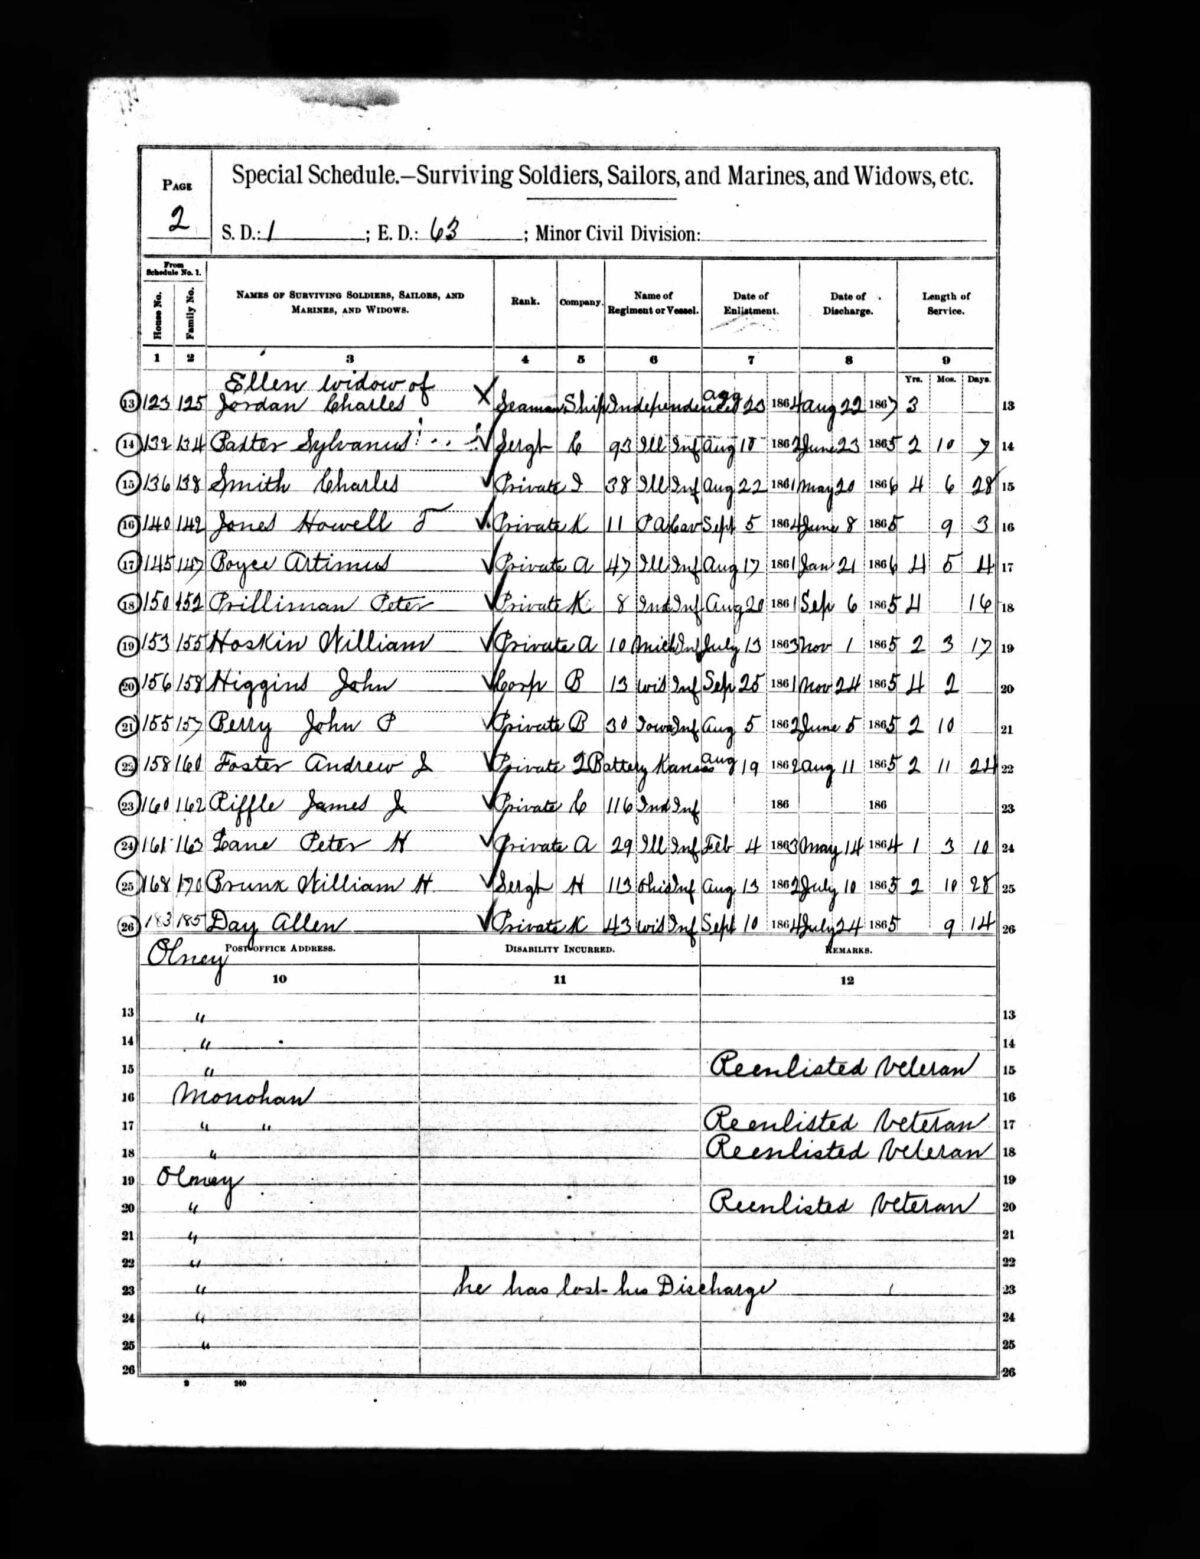 PAGE
2
Special Schedule.—Surviving Soldiers, Sailors, and Marines, and Widows, etc.
S. D.: 1 ; E. D.: 63 ; Minor Civil Division:
From Schedule No. 1.
House No. Family No. NAMES OF SURVIVING SOLDIERS, SAILORS, AND MARINES, AND WIDOWS. Rank. Company. Name of Regiment or Vessel. Date of Enlistment. Date of Discharge. Length of Service.
1 2 3 4 5 6 7 8 9
Yrs. Mos. Days.
Ellen widow of
13 123 125 Jordan Charles X Seaman Ship Independence 23 1864 Aug 22 1867 3 13
14 132 134 Paxter Sylvanus Sergt C 93 Ill Inf Aug 18 1862 June 23 1865 2 10 7 14
15 136 138 Smith Charles Private I 38 Ill Inf Aug 22 1861 May 20 1866 4 6 28 15
16 140 142 Jones Howell T Private K 11 PA Cav Sept 5 1864 June 8 1865 9 3 16
17 145 147 Boyce Artimus Private A 47 Ill Inf Aug 17 1861 Jan 21 1866 4 5 4 17
18 150 152 Prilliman Peter Private K 8 Ind Inf Aug 20 1861 Sep 6 1865 4 16 18
19 153 155 Hoskin William Private A 10 Mich Inf July 13 1863 Nov 1 1865 2 3 17 19
20 156 158 Higgins John Corp B 13 Wis Inf Sep 25 1861 Nov 24 1865 4 2 20
21 155 157 Perry John P Private B 30 Iowa Inf Aug 5 1862 June 5 1865 2 10 21
22 158 160 Foster Andrew J Private 2 Battery Kansas Aug 19 1862 Aug 11 1865 2 11 24 22
23 160 162 Riffle James J Private C 116 Ind Inf 186 186 23
24 161 163 Lane Peter H Private A 29 Ill Inf Feb 4 1863 May 14 1864 1 3 10 24
25 168 170 Brunx William H Sergt H 113 Ohio Inf Aug 13 1862 July 10 1865 2 10 28 25
26 183 185 Day Allen Private K 43 Wis Inf Sept 10 1864 July 24 1865 9 14 26
POST-OFFICE ADDRESS. DISABILITY INCURRED. REMARKS.
Olney
10 11 12
13 " 13
14 " 14
15 " Reenlisted Veteran 15
16 Monohan 16
17 " " Reenlisted Veteran 17
18 " Reenlisted Veteran 18
19 Olney 19
20 " Reenlisted Veteran 20
21 " 21
22 " 22
23 " he has lost his Discharge 23
24 " 24
25 " 25
26 26